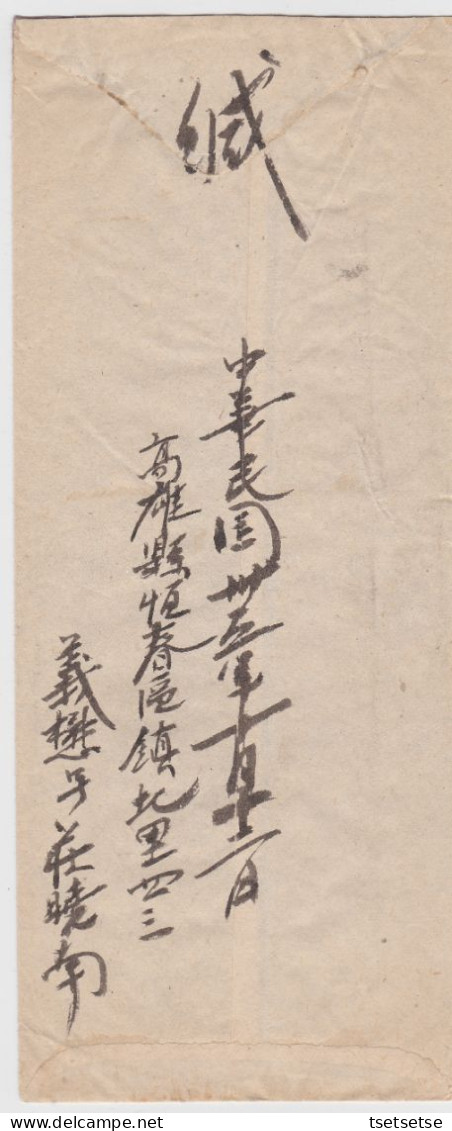 緘
中華民國卅五年十月十二日
高雄縣恒春區鎮北里四三
義懋号莊曉南
tsetsetse